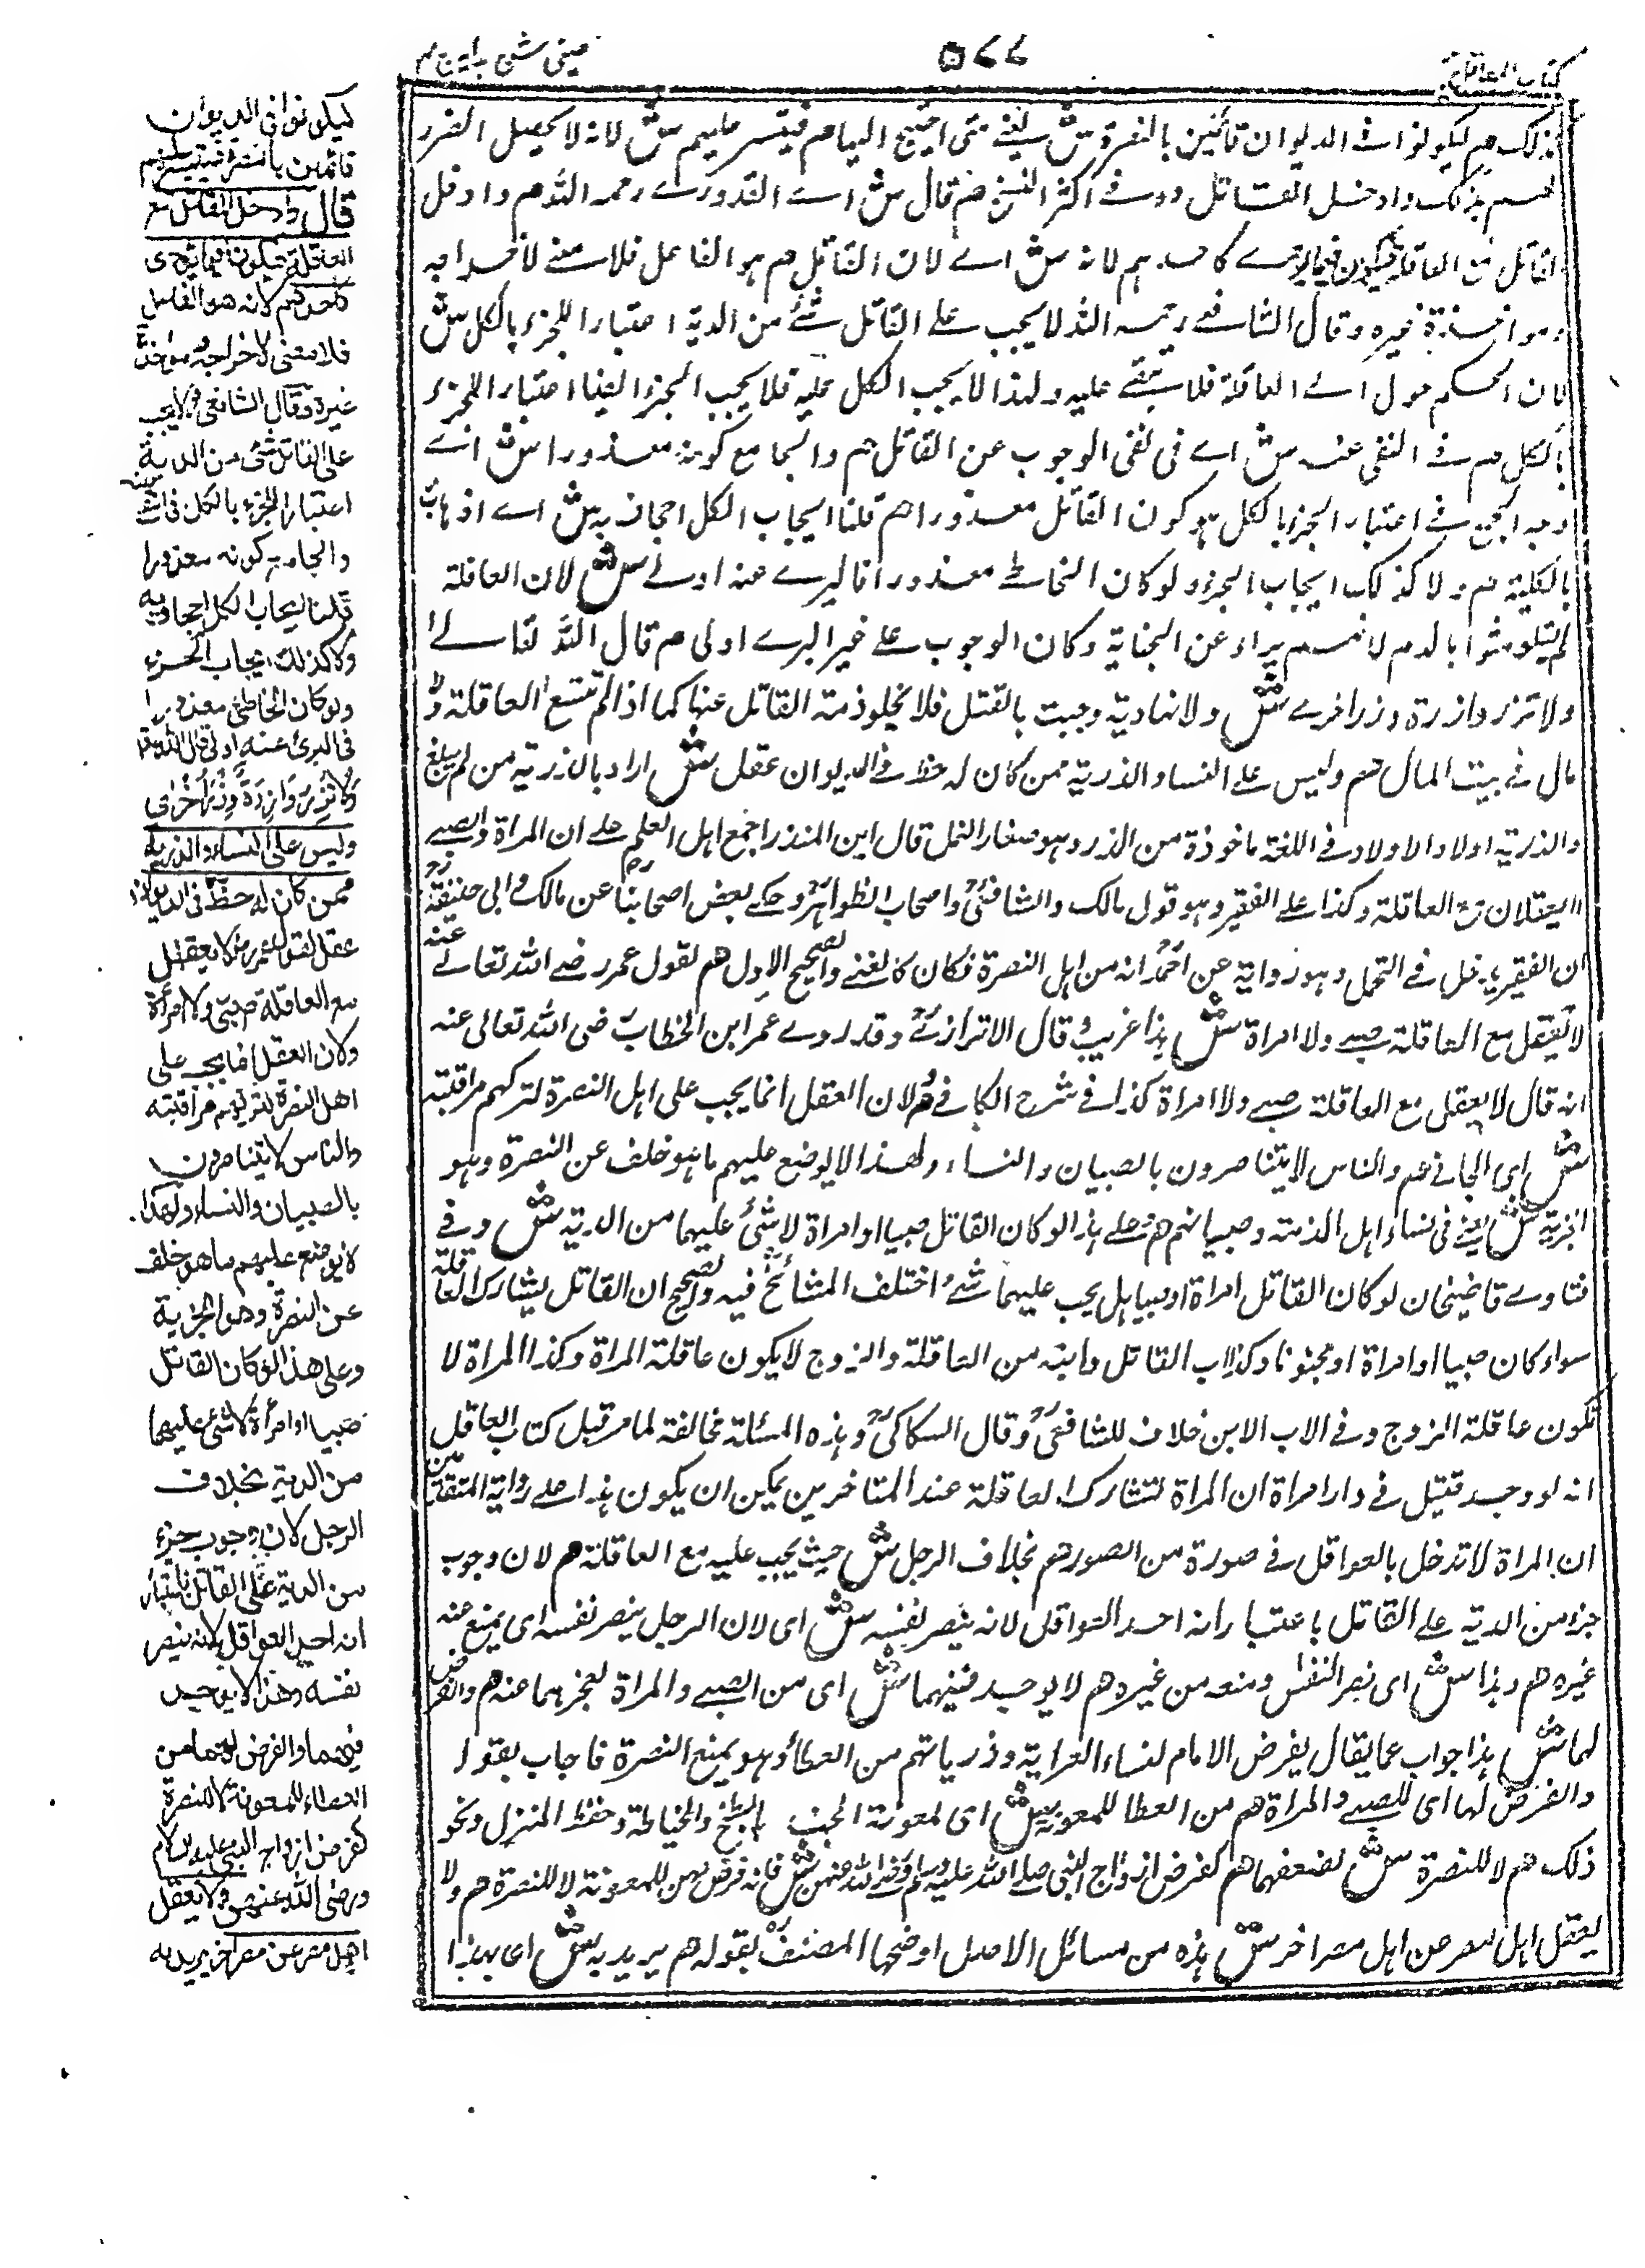 كتاب المعاقل
٥٧٧
عينى شرح هداية ج ٤
بذلك م ليكونوا فى الديوان قائمين بالنصرة ش يعنى متى احتيج اليها م فيتيسر عليهم ش لانه لا يحصل الضرر
لهم بذلك وادخل القاتل وفى اكثر النسخ م قال ش اى القدورى رحمه الله م وادخل
القاتل مع العاقلة فيكون فيما يؤدى كاحدهم لانه ش اى لان القاتل م هو الفاعل فلا معنى لاخراجه
ومواخذة غيره وقال الشافعى رحمه الله لا يجب على القاتل شئ من الدية اعتبارا للجزء بالكل ش
لان الحكم حول الى العاقلة فلا يبقى عليه ولهذا لا يجب الكل عليه فلا يجب الجزء ايضا اعتبارا للجزء
بالكل م فى النفى عنه ش اى فى نفى الوجوب عن القاتل م والجامع كونه معذورا ش اى
وجه الجمع فى اعتبار الجزء بالكل هو كون القاتل معذورا م قلنا ايجاب الكل اجحاف به ش اى اذهاب
بالكلية م ولا كذلك ايجاب الجزء ولو كان الخاطئ معذورا فالبرى عنه اولى ش لان العاقلة
لم يتلوثوا بالدم لانهم براء عن الجناية وكان الوجوب على غير البرى اولى م قال الله تعالى
ولا تزر وازرة وزر اخرى ش ولانها دية وجبت بالقتل فلا يخلو ذمة القاتل عنها كما اذا لم تسع العاقلة ولا
مال فى بيت المال م وليس على النساء والذرية ممن كان له حظ فى الديوان عقل ش اراد بالذرية من لم يبلغ
والذرية اولاد الاولاد وفى اللغة ماخوذة من الذر وهو صغار النمل قال ابن المنذر اجمع اهل العلم على ان المراة والصبى
لا يعقلان مع العاقلة وكذا على الفقير وهو قول مالك والشافعى واصحاب الظواهر وحكى بعض اصحابنا عن مالك وابى حنيفة
ان الفقير يدخل فى التحمل وهو رواية عن احمد انه من اهل النصرة فكان كالغنى والصحيح الاول م لقول عمر رضى الله تعالى عنه
لا يعقل مع العاقلة صبى ولا امراة ش هذا غريب وقال الاترازى وقد روى عمر ابن الخطاب رضى الله تعالى عنه
انه قال لا يعقل مع العاقلة صبى ولا امراة كذا فى شرح الكافى م ولان العقل انما يجب على اهل النصرة لتركهم مراقبته
ش اى الجانى م والناس لا يتناصرون بالصبيان والنساء ولهذا لا يوضع عليهم ما هو خلف عن النصرة وهو
الجزية ش يعنى فى نساء اهل الذمة وصبيانهم م وعلى هذا لو كان القاتل صبيا او امراة لا شئ عليهما من الدية ش وفى
فتاوى قاضيخان لو كان القاتل امراة او صبيا هل يجب عليهما شئ اختلف المشائخ فيه والصحيح ان القاتل يشارك العاقلة
سواء كان صبيا او امراة او مجنونا وكذا اب القاتل وابنه من العاقلة والزوج لا يكون عاقلة المراة وكذا المراة لا
تكون عاقلة الزوج وفى الاب الابن خلاف للشافعى وقال السكاكى وهذه المسئلة مخالفة لما مر قبل كتاب العاقل
انه لو وجد قتيل فى دار امراة ان المراة تشارك العاقلة عند المتاخرين يمكن ان يكون هذا على رواية المتقدمين
ان المراة لا تدخل بالعواقل فى صورة من الصور م بخلاف الرجل ش حيث يجب عليه مع العاقلة م لان وجوب
جزء من الدية على القاتل باعتبار انه احد العواقل لانه ينصر نفسه ش اى لان الرجل ينصر نفسه اى يمنع عنه
غيره م وهذا ش اى نصر النفس ومنعه من غيره م لا يوجد فيهما ش اى من الصبى والمراة لعجزهما عنه م والفرض
لهما ش هذا جواب عما يقال يفرض الامام لنساء الغزاة وذرياتهم من العطاء وهو يمنع النصرة فاجاب بقوله
والفرض لهما اى للصبى والمراة م من العطا للمعونة ش اى لمعونة الجند بالطبخ والخياطة وحفظ المنزل ونحو
ذلك م لا للنصرة ش لضعفهما م كفرض ازواج النبى صلى الله عليه وسلم ورضى الله عنهن ش فانه فرض لهن للمعونة لا للنصرة م ولا
يعقل اهل مصر عن اهل مصر اخر ش هذه من مسائل الاصل اوضحها المصنف بقوله م يريد به ش اى بهذا
ليكونوا فى الديوان
قائمين بالنصرة فيتيسر عليهم
قال وادخل القاتل مع
العاقلة فيكون فيما يؤدى
كاحدهم لانه هو الفاعل
فلا معنى لاخراجه ومواخذة
غيره وقال الشافعى لا يجب
على القاتل شئ من الدية
اعتبارا للجزء بالكل فى النفى عنه
والجامع كونه معذورا
قلنا ايجاب الكل اجحاف به
ولا كذلك ايجاب الجزء
ولو كان الخاطئ معذورا
فالبرئ عنه اولى قال الله تعالى
ولا تزر وازرة وزر اخرى
وليس على النساء والذرية
ممن كان له حظ فى الديوان
عقل لقول عمر لا يعقل
مع العاقلة صبى ولا امرأة
ولان العقل انما يجب على
اهل النصرة لتركهم مراقبته
والناس لا يتناصرون
بالصبيان والنساء ولهذا
لا يوضع عليهم ما هو خلف
عن النصرة وهو الجزية
وعلى هذا لو كان القاتل
صبيا او امرأة لا شئ عليهما
من الدية بخلاف
الرجل لان وجوب جزء
من الدية على القاتل باعتبار
انه احد العواقل لانه ينصر
نفسه وهذا لا يوجد
فيهما والفرض لهما من
العطاء للمعونة لا للنصرة
كفرض ازواج النبى عليه السلام
ورضى الله عنهن ولا يعقل
اهل مصر عن مصر اخر يريد به